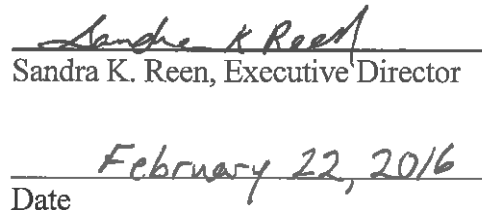 Sandra K Reen
Sandra K. Reen, Executive Director
February 22, 2016
Date